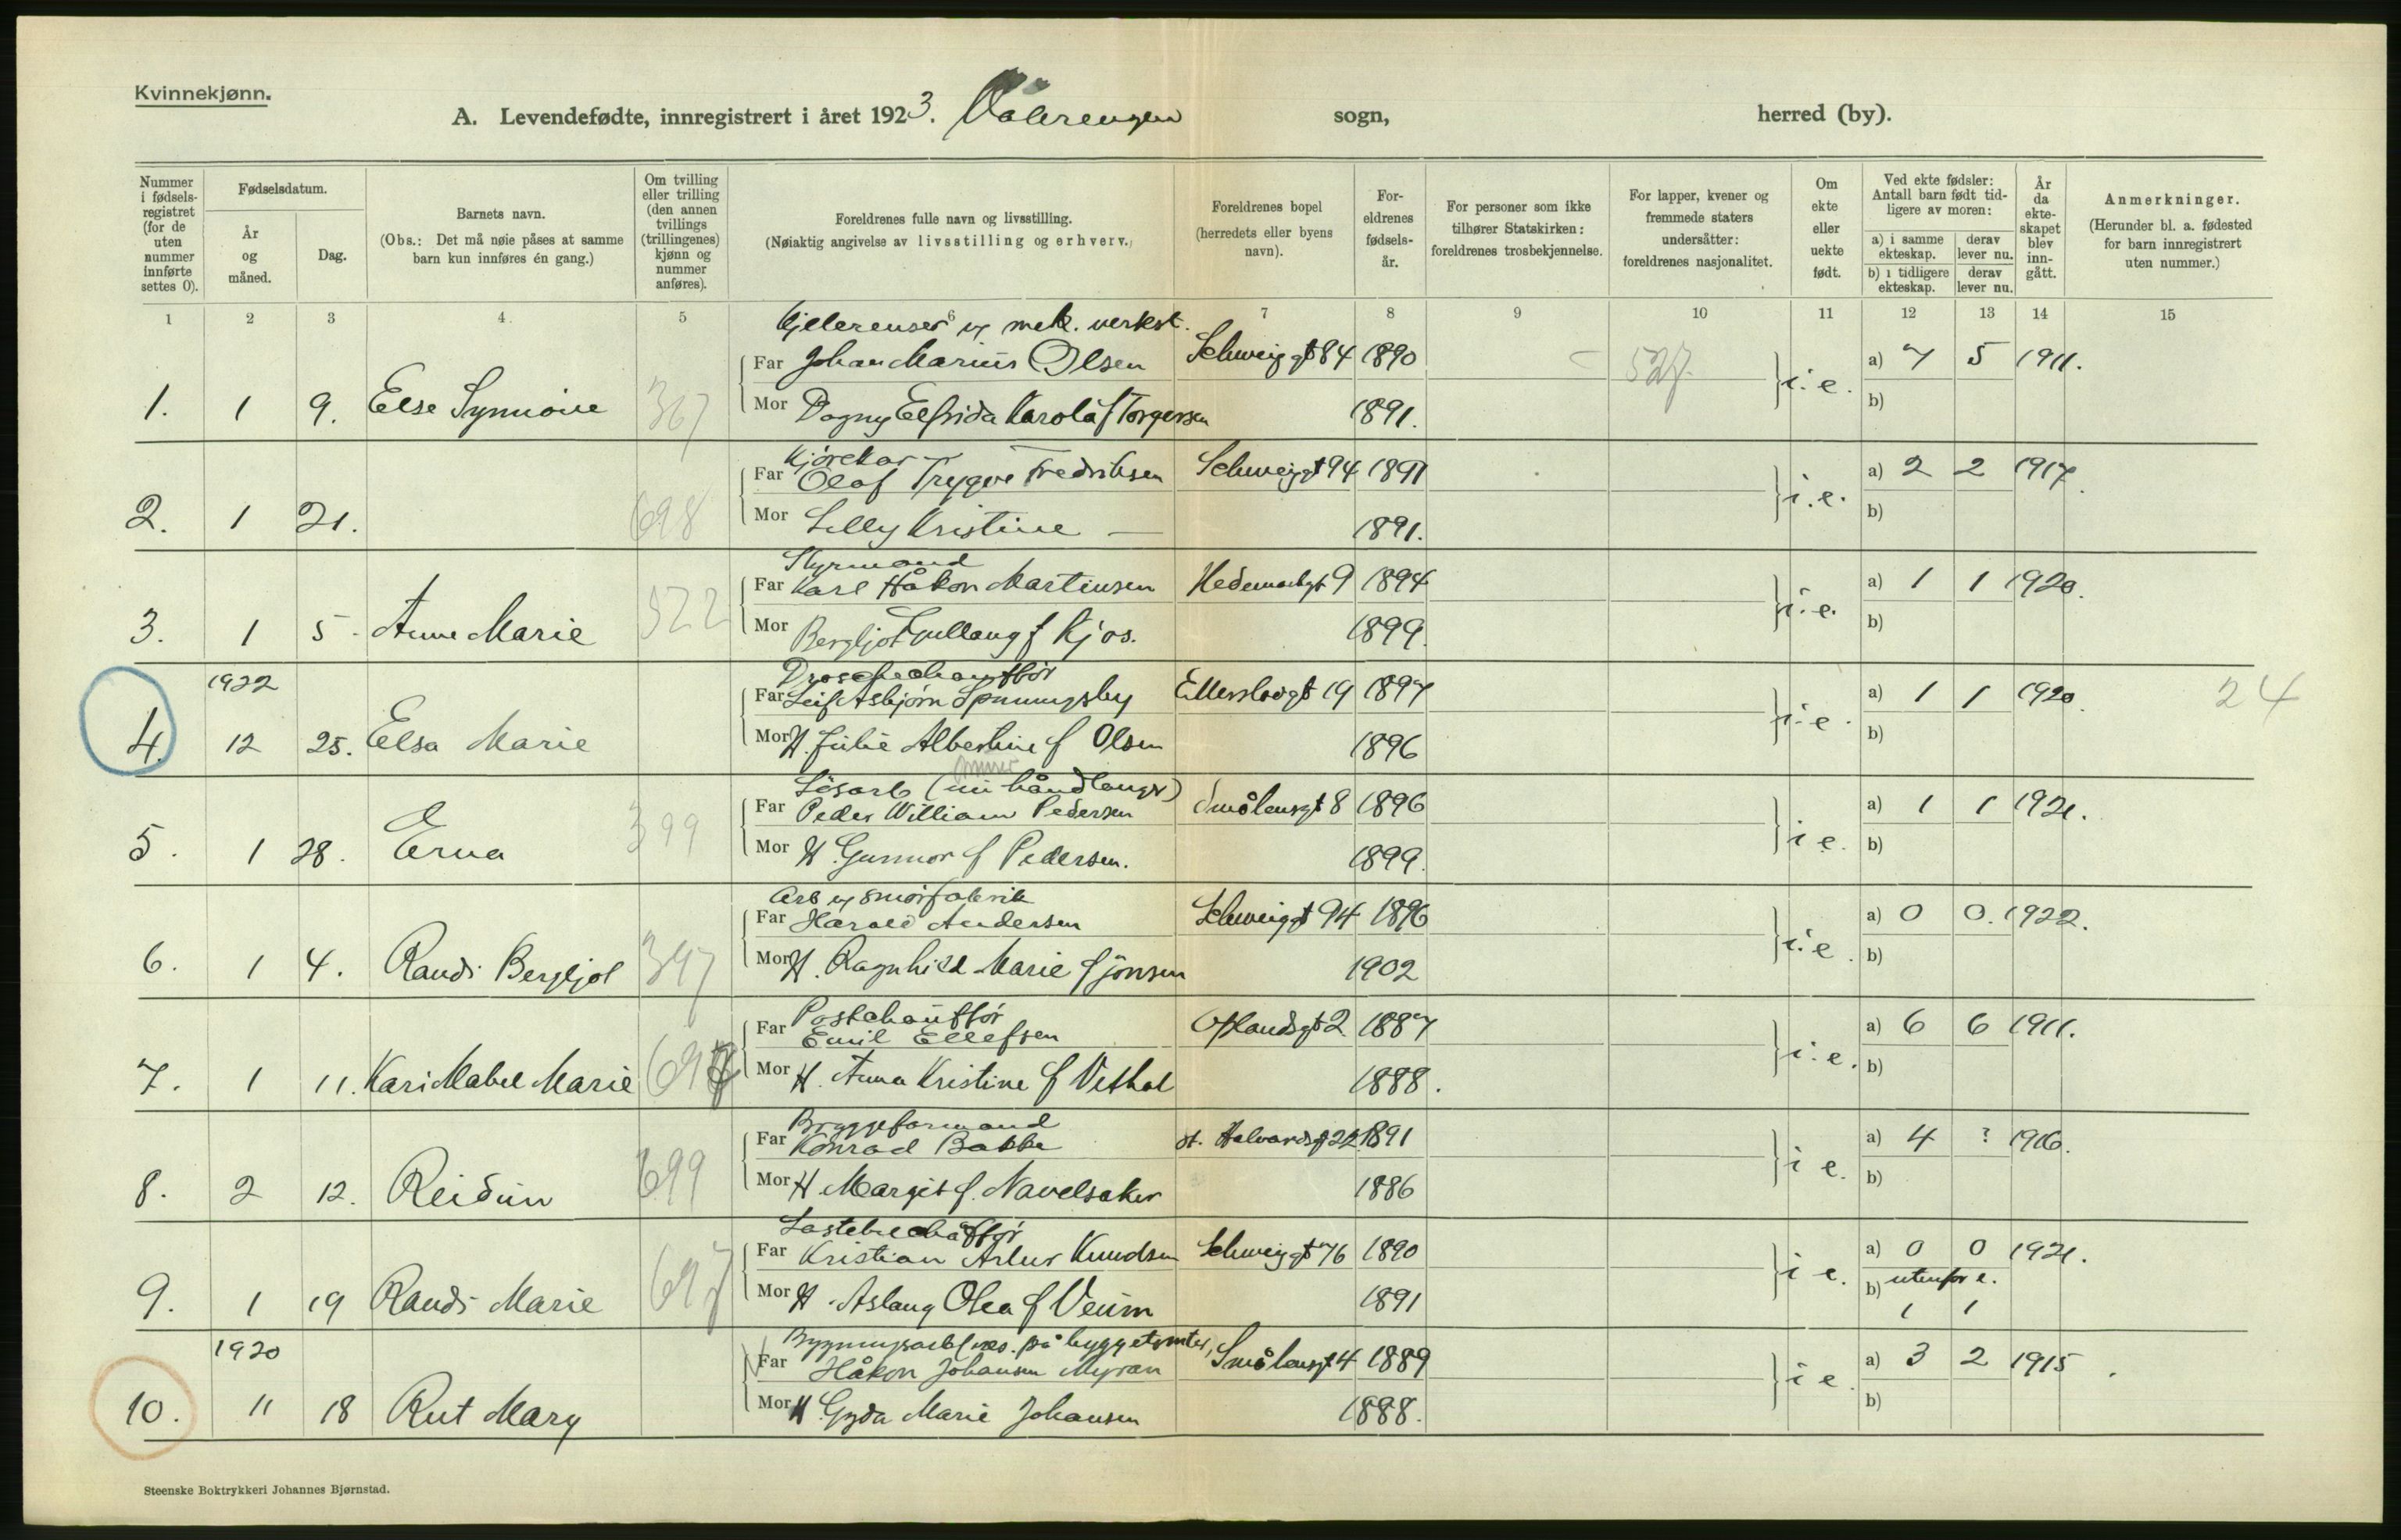 Kvinnekjønn.
A. Levendefødte, innregistrert i året 1923. Vålerengen sogn, herred (by).
Nummer i fødselsregistret (for de uten nummer innførte settes 0).
Fødselsdatum.
År og måned.
Dag.
Barnets navn.
(Obs.: Det må nøie påses at samme barn kun innføres én gang.)
Om tvilling eller trilling (den annen tvillings (trillingenes) kjønn og nummer anføres).
Foreldrenes fulle navn og livsstilling.
(Nøiaktig angivelse av livsstilling og erhverv.)
Foreldrenes bopel (herredets eller byens navn).
Foreldrenes fødselsår.
For personer som ikke tilhører Statskirken: foreldrenes trosbekjennelse.
For lapper, kvener og fremmede staters undersåtter: foreldrenes nasjonalitet.
Om ekte eller uekte født.
Ved ekte fødsler: Antall barn født tidligere av moren:
a) i samme ekteskap. derav lever nu.
b) i tidligere ekteskap. derav lever nu.
År da ekteskapet blev inngått.
Anmerkninger.
(Herunder bl. a. fødested for barn innregistrert uten nummer.)
1 2 3 4 5 6 7 8 9 10 11 12 13 14 15
Kjelerenser v mek. verkst.
Far Johan Marius Olsen Schweiggt 84 1890 527 a) 7 5 1911.
1. 1 9. Else Synnöve 367 Mor Dagny Elfrida Karola f Torgersen 1891. i. e. b)
Kjörekar
Far Olaf Trygve Fredriksen Schweiggt 94 1891 a) 2 2 1917.
2. 1 21. 698 Mor Lilly Kristine — 1891. i. e. b)
Styrmand
Far Karl Håkon Martinsen Hedemarkgt 9 1894 a) 1 1 1920.
3. 1 5. Anne Marie 522 Mor Bergljot Gullaug f Kjos. 1899. i. e. b)
Droschechauffør
1922 Far Leif Asbjørn Spnningsby Ellerslivgt 19 1897 a) 1 1 1920. 24
4. 12 25. Elsa Marie Mor H. Julie Albertine f Olsen 1896 i. e. b)
Lösarb (nu håndlanger)
Far Peder William Pedersen Smålensgt 8 1896 a) 1 1 1921.
5. 1 28. Erna 399 Mor H. Gunnor f Pedersen. 1899. i e. b)
Arb v smörfabrik
Far Harald Andersen Schweiggt 94 1896 a) 0 0. 1922.
6. 1 4. Randi Bergljot 397 Mor H. Ragnhild Marie f Jonsen 1902 i. e. b)
Postchauffør
Far Emil Ellefsen Oplandsgt 2 1887 a) 6 6 1911.
7. 1 11. Kari Mabel Marie Mor H. Anna Kristine f Vethal 1888. i. e. b)
Bryggeformand
Far Konrad Bakke St. Halvardsgt 22 1891 a) 4 ? 1916.
8. 2 12. Reidun 699 Mor H Margit f. Navelsaker 1886 i e. b)
Lastebilchaffør
Far Kristian Artur Knudsen Schweiggt 76 1890 a) 0 0 1921.
9. 1 19 Randi Marie 697 Mor H. Aslaug Olea f Veum 1891 i e. b) utenfor e. 1 1
Bygningsarb (væs. på byggetomter)
1920 Far Håkon Johansen Myran Smålensgt 4 1889 a) 3 2 1915.
10. 11 18 Rut Mary Mor H. Gyda Marie Johansen 1888. i e. b)
Steenske Boktrykkeri Johannes Bjørnstad.